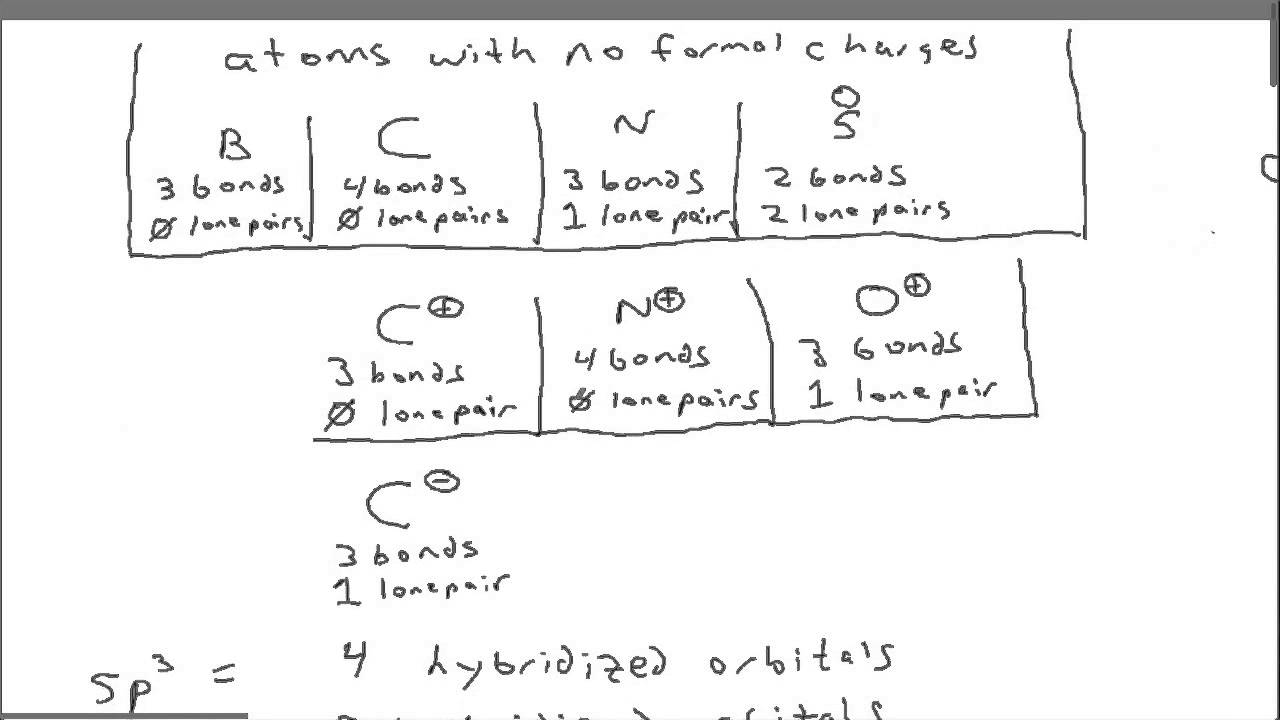 atoms with no formal charges
B C N O
S
3 bonds 4 bonds 3 bonds 2 bonds
Ø lone pairs Ø lone pairs 1 lone pair 2 lone pairs
C⊕ N⊕ O⊕
3 bonds 4 bonds 3 bonds
Ø lone pair Ø lone pairs 1 lone pair
C⊖
3 bonds
1 lone pair
sp³ = 4 hybridized orbitals
orbitals